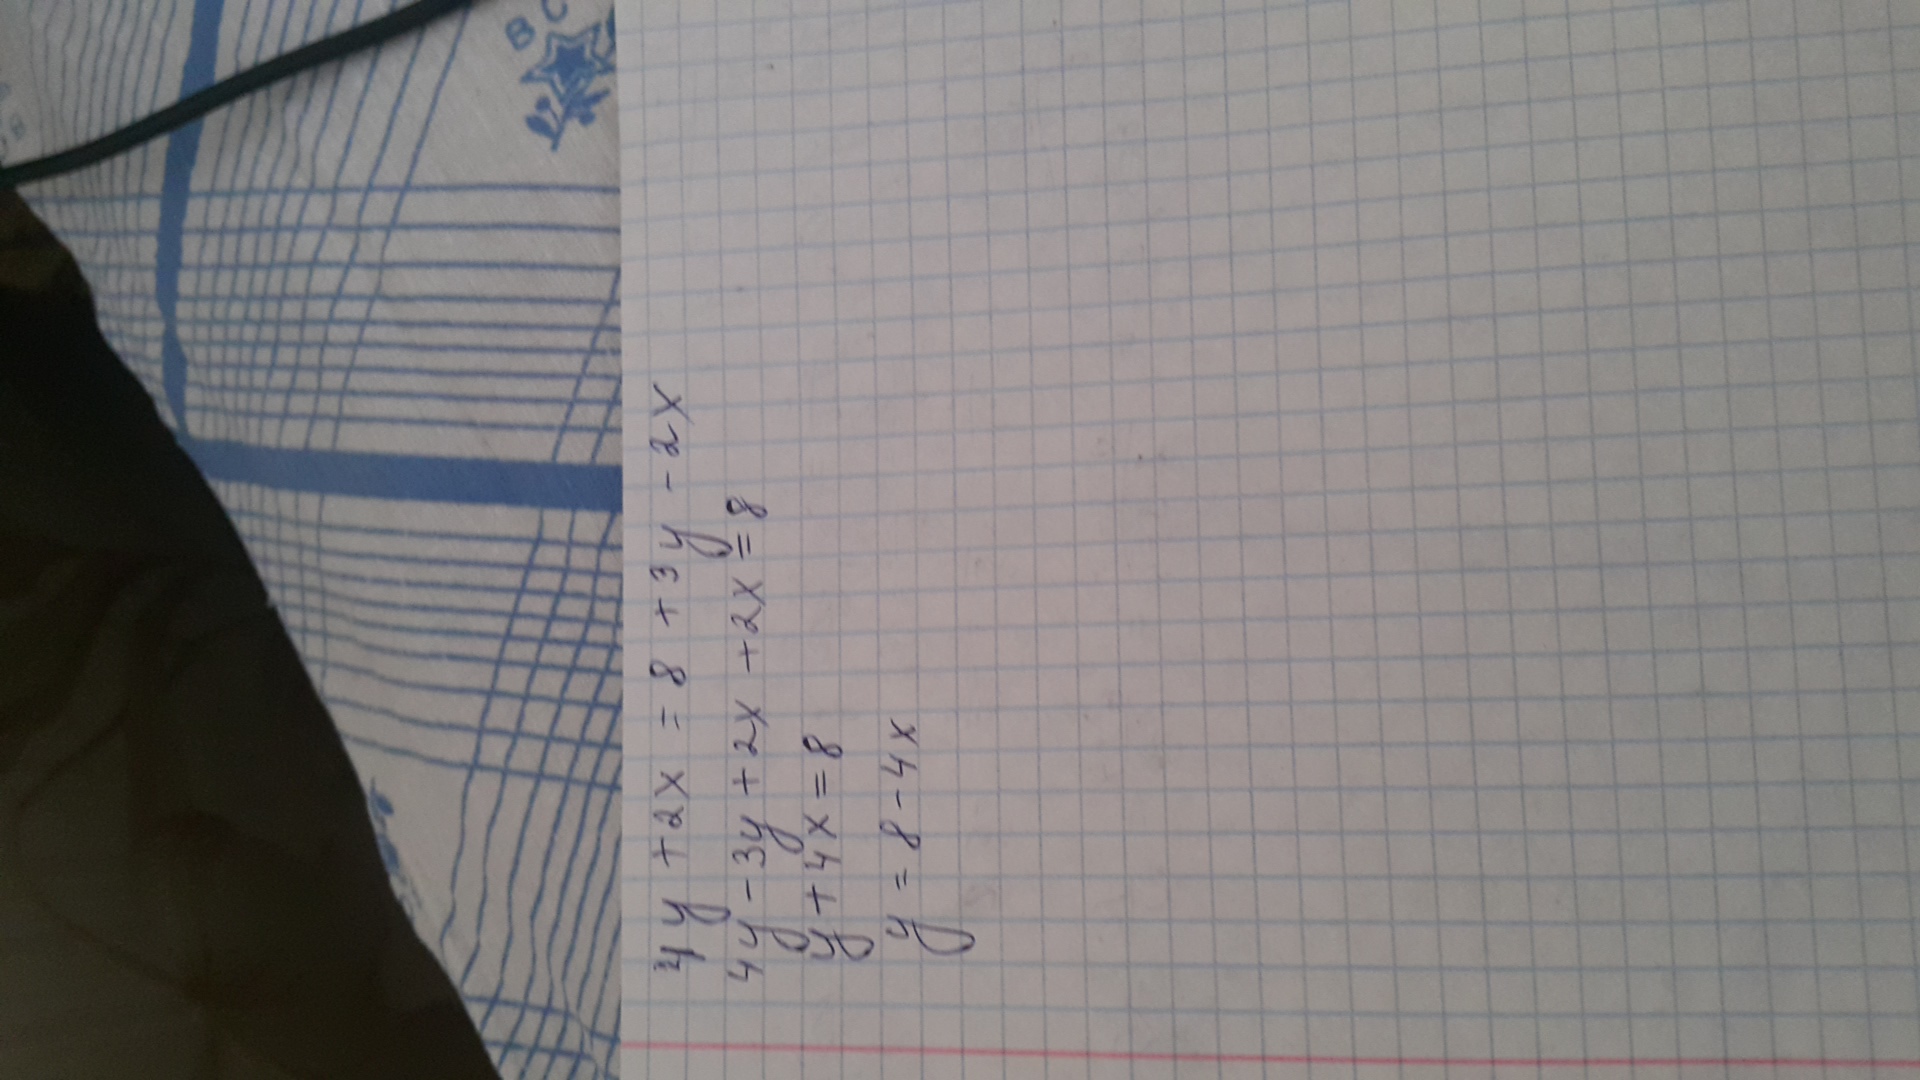 4y + 2x = 8 + 3y - 2x
4y - 3y + 2x + 2x = 8
y + 4x = 8
y = 8 - 4x